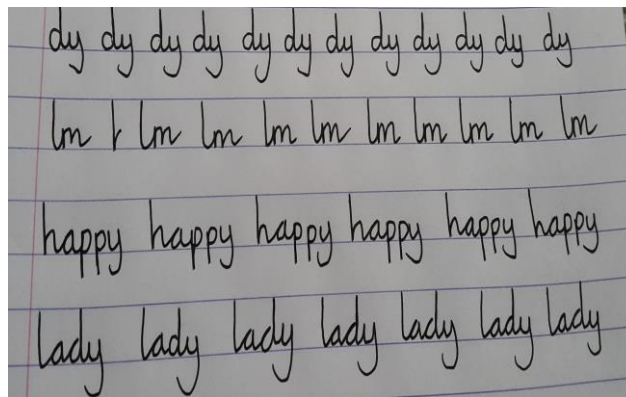 dy dy dy dy dy dy dy dy dy dy dy dy
lm l lm lm lm lm lm lm lm lm lm
happy happy happy happy happy happy
lady lady lady lady lady lady lady